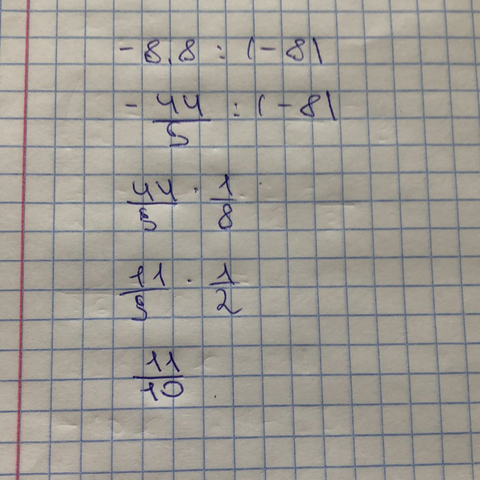 -8,8 : (-8)
- 44/5 : (-8)
44/5 · 1/8
11/5 · 1/2
11/10